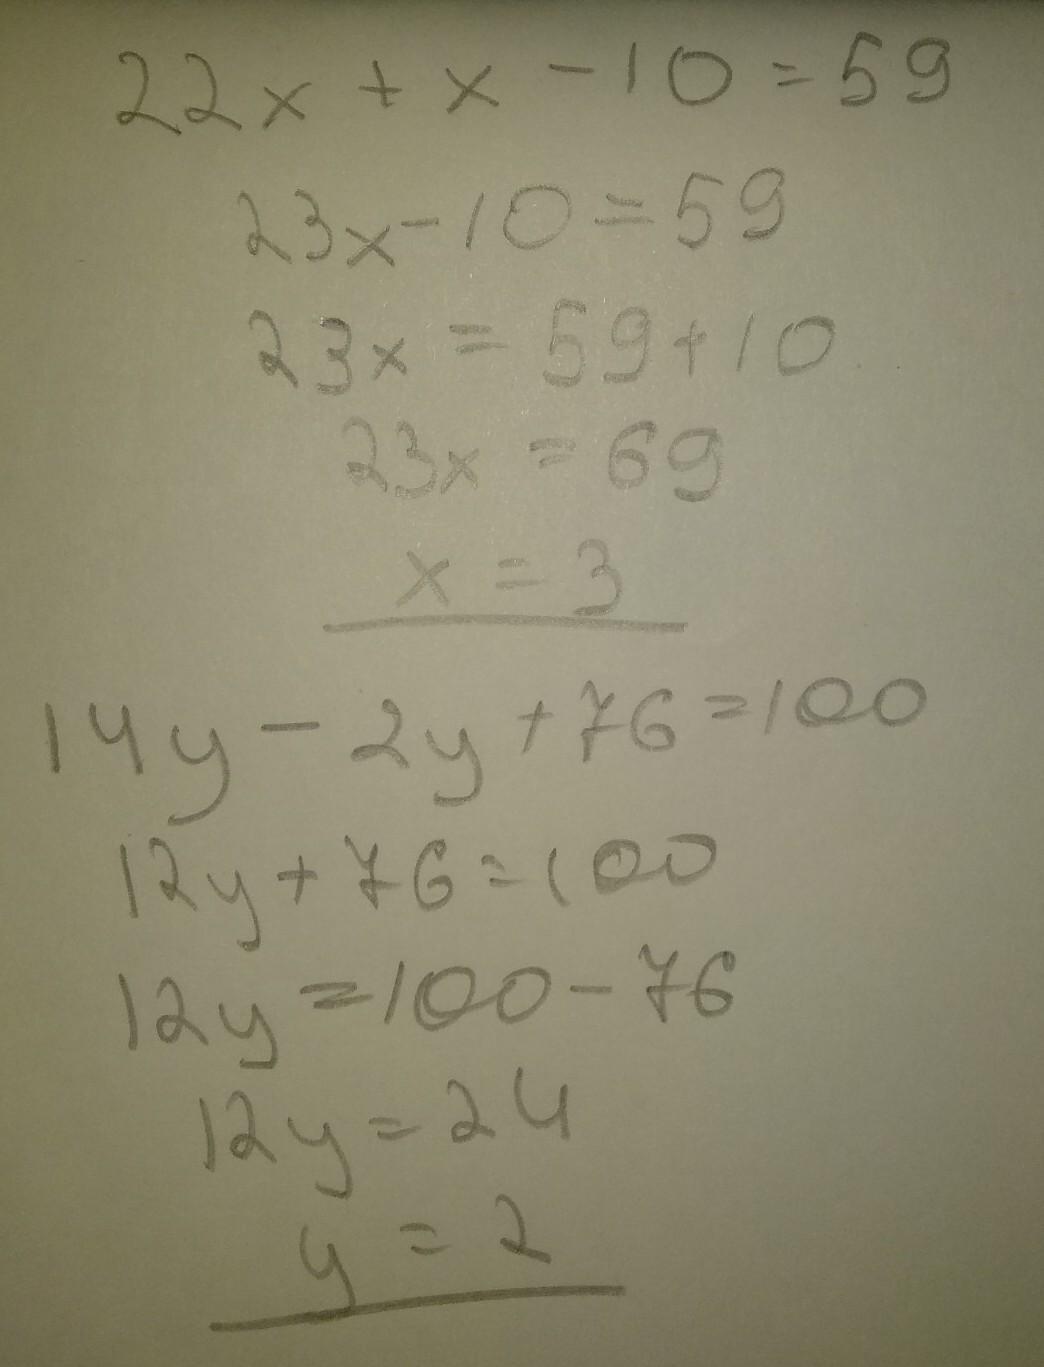 22x + x - 10 = 59
23x - 10 = 59
23x = 59 + 10
23x = 69
x = 3
14y - 2y + 76 = 100
12y + 76 = 100
12y = 100 - 76
12y = 24
y = 2